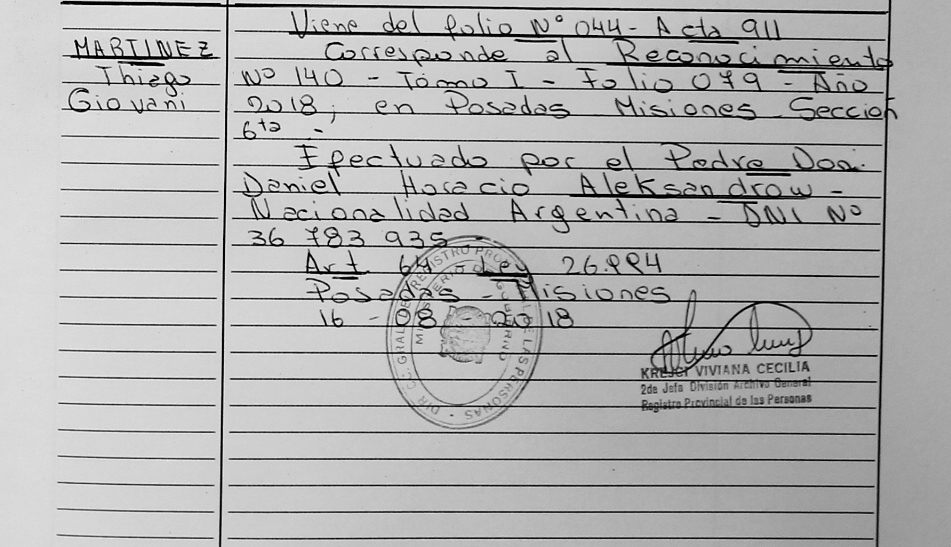 Viene del folio Nº 044 - Acta 911
MARTINEZ
Thiago
Giovani
Corresponde al Reconocimiento
Nº 140 - Tomo I - Folio 079 - Año
2018; en Posadas Misiones Sección
6ta -
Efectuado por el Padre Don.
Daniel Horacio Aleksandrow -
Nacionalidad Argentina - DNI Nº
36 783 935
Art 64 Ley 26.994
Posadas - Misiones
16 - 08 - 2018
KREJCI VIVIANA CECILIA
2da Jefa División Archivo General
Registro Provincial de las Personas
DIR. GRAL. DE REGISTRO PROVINCIAL DE LAS PERSONAS
MINISTERIO DE GOBIERNO